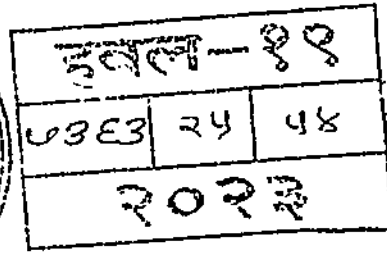 हवल-११
७३६३ २५ ५४
२०२३